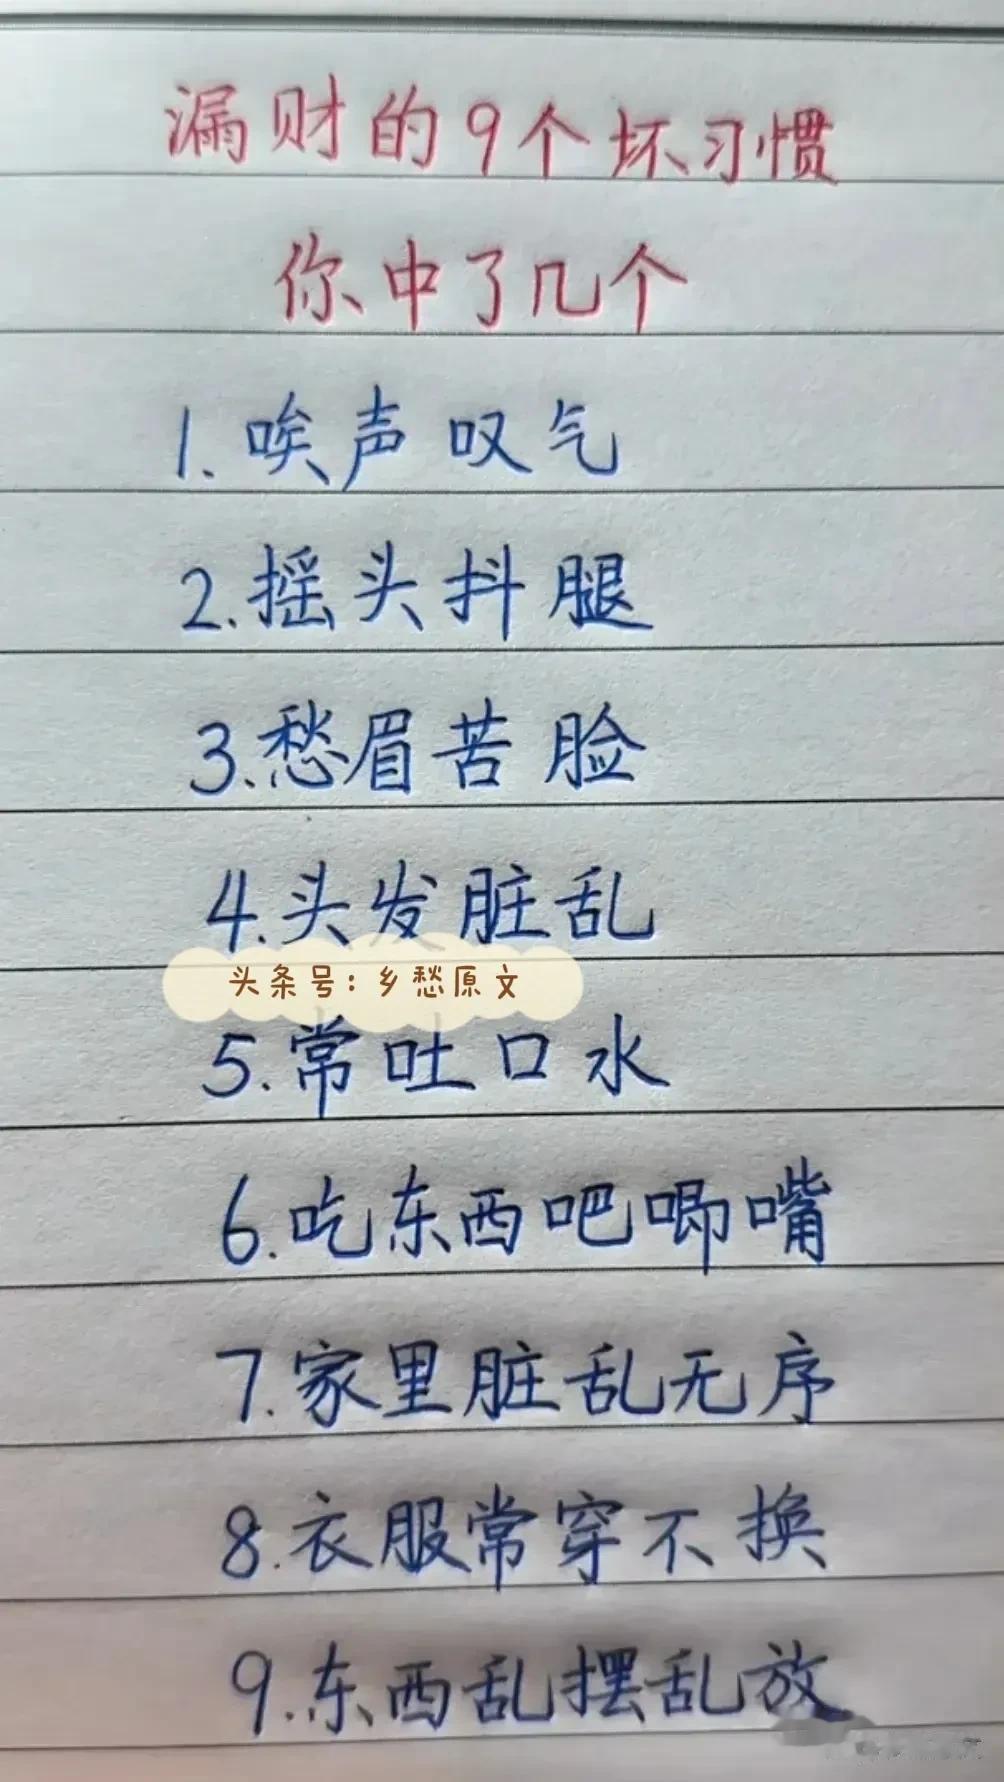 漏财的9个坏习惯
你中了几个
1.唉声叹气
2.摇头抖腿
3.愁眉苦脸
4.头发脏乱
头条号:乡愁原文
5.常吐口水
6.吃东西吧唧嘴
7.家里脏乱无序
8.衣服常穿不换
9.东西乱摆乱放